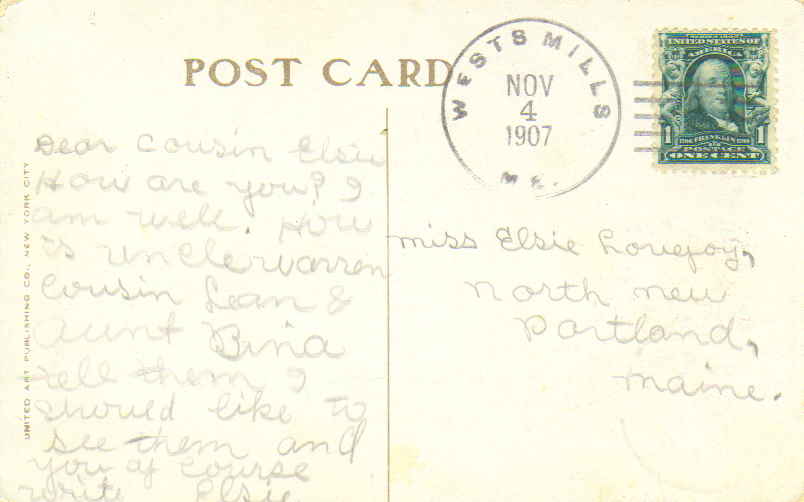 POST CARD
WESTS MILLS
NOV
4
1907
ME.
UNITED STATES OF
AMERICA
FRANKLIN
POSTAGE
1 1
ONE CENT
UNITED ART PUBLISHING CO., NEW YORK CITY
Dear Cousin Elsie
How are you? I
am well. How
is unclewarren
Cousin Lean &
Aunt Bina
tell them I
should like to
see them and
you of course
write Elsie
Miss Elsie Lovejoy,
North new
Portland,
Maine.